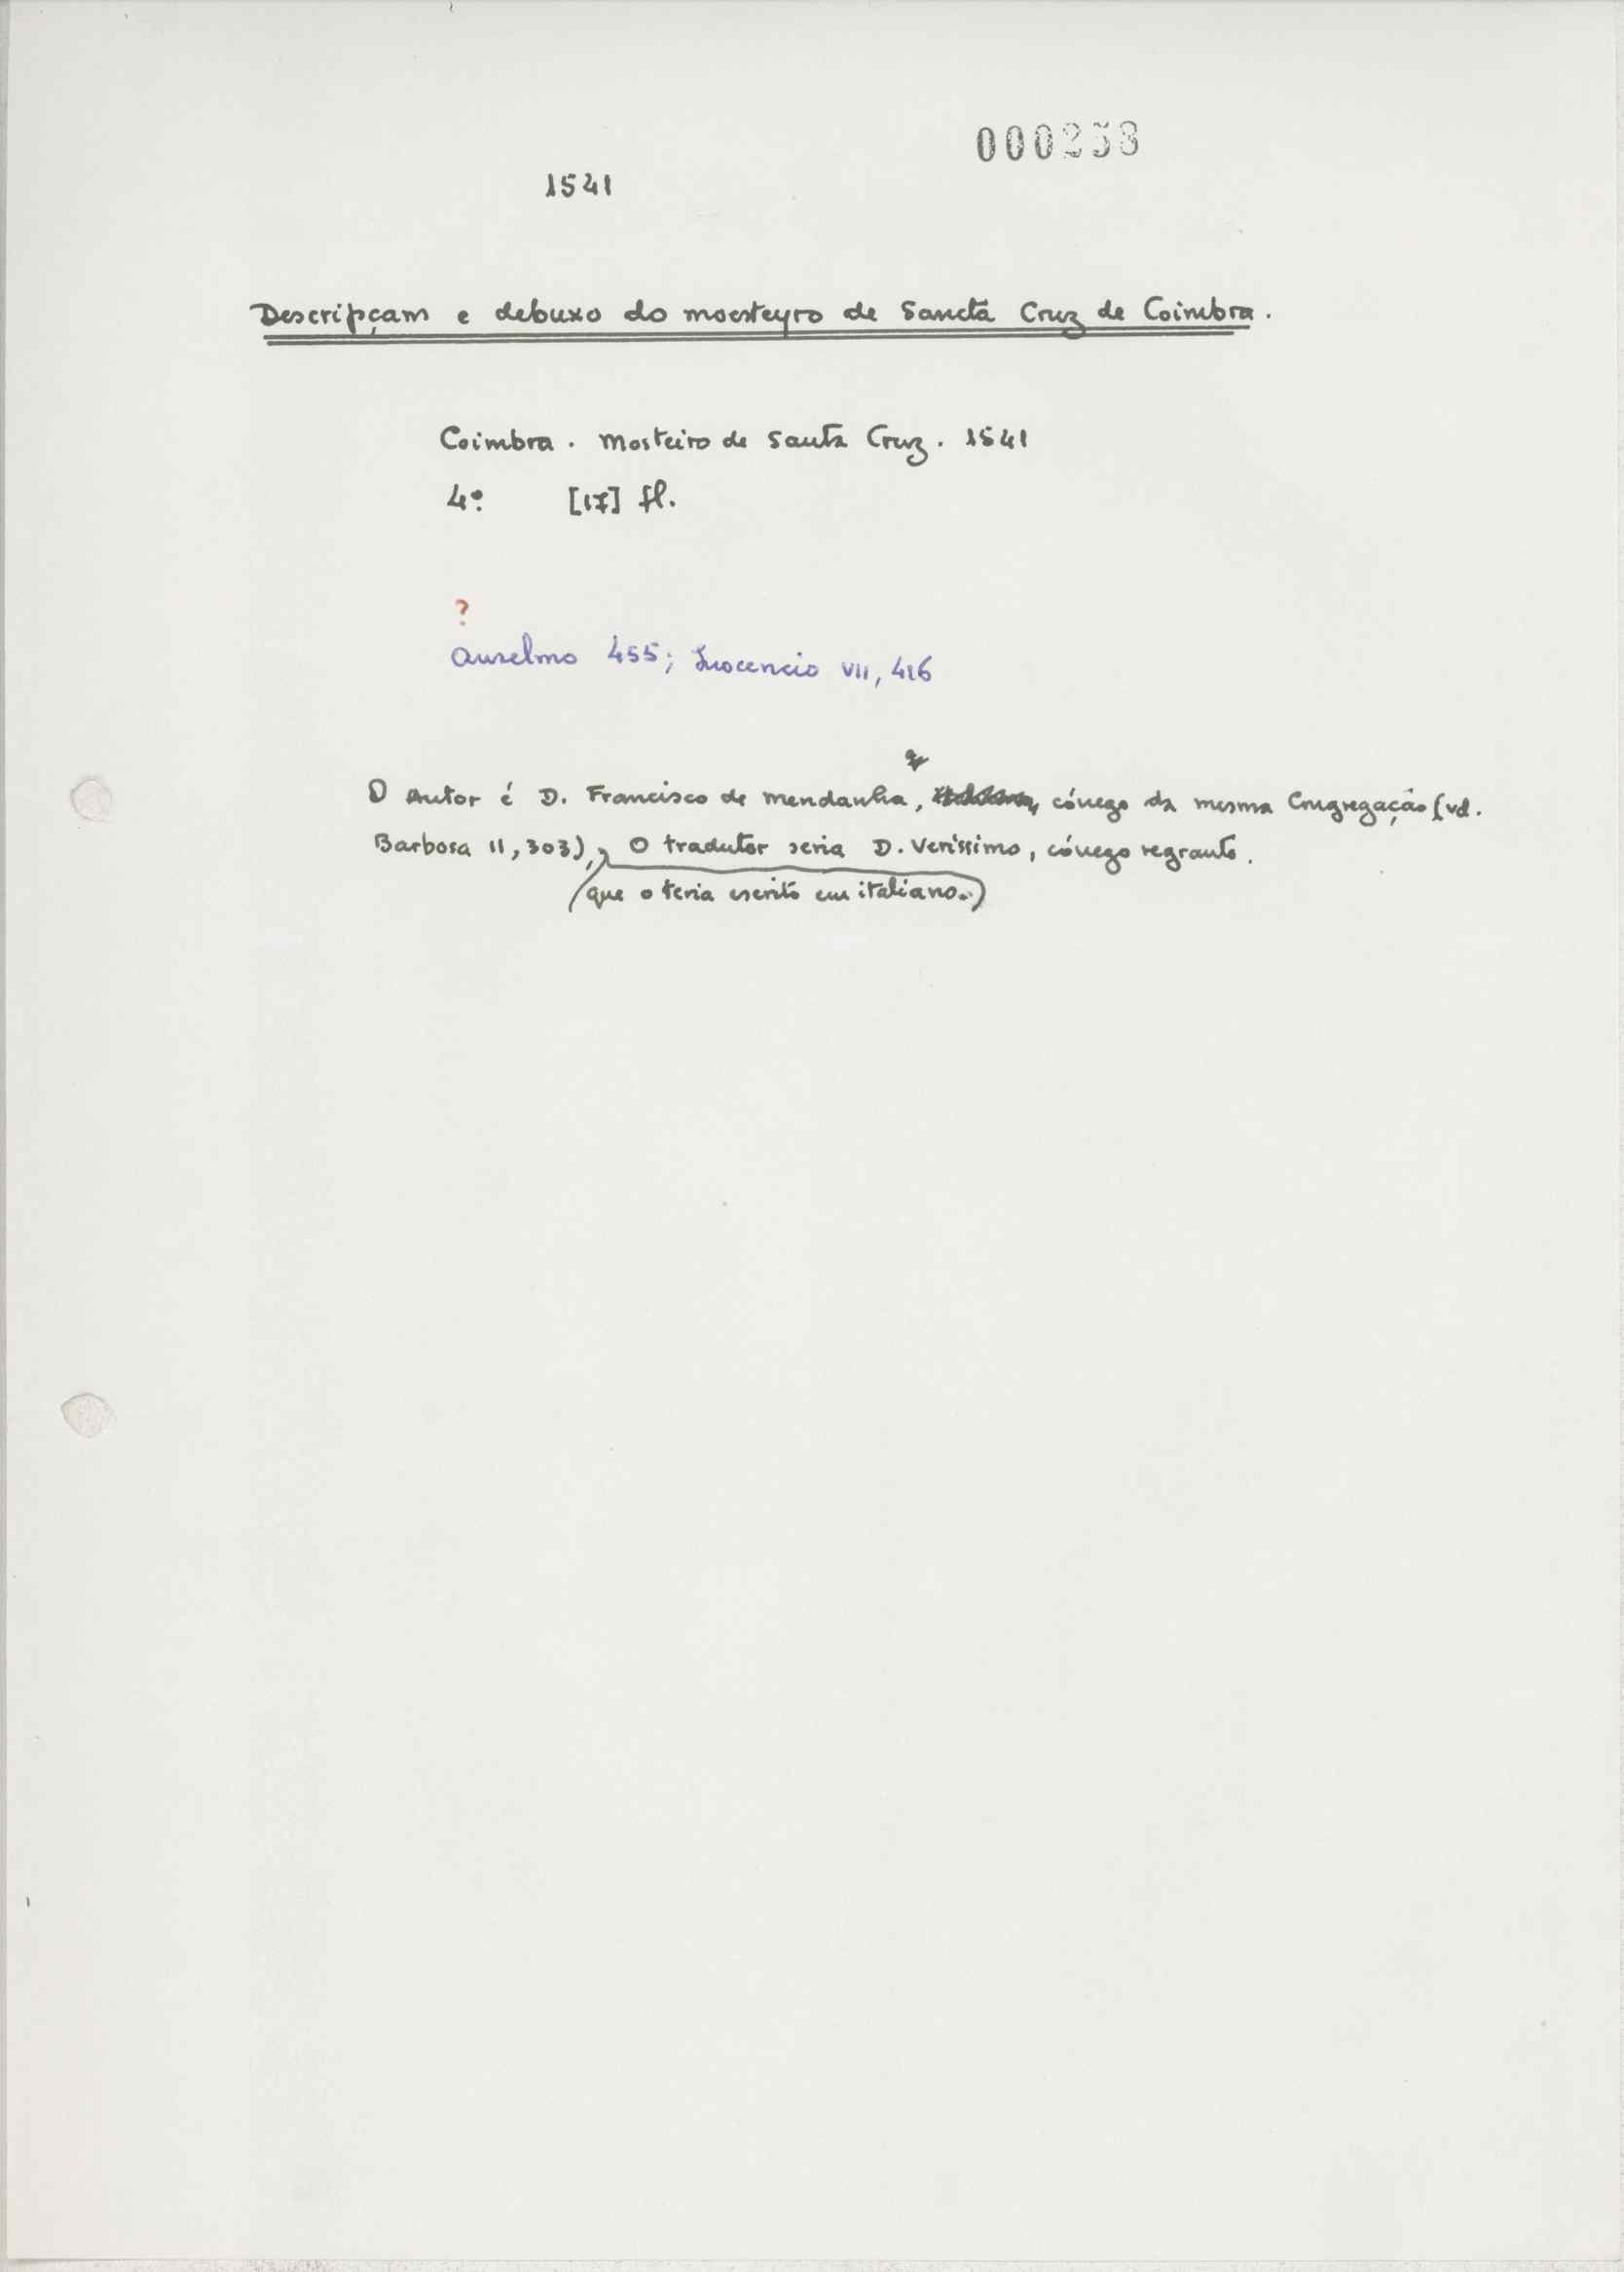 000258
1541
Descripçam e debuxo do moesteyro de Sancta Cruz de Coimbra.
Coimbra. Mosteiro de Santa Cruz. 1541
4º [17] fl.
?
Anselmo 455; Inocencio VII, 416
O Autor é D. Francisco de Mendanha, cónego da mesma Congregação (vd.
Barbosa II, 303), O tradutor seria D. Veríssimo, cónego regrante.
(que o teria escrito em italiano.)